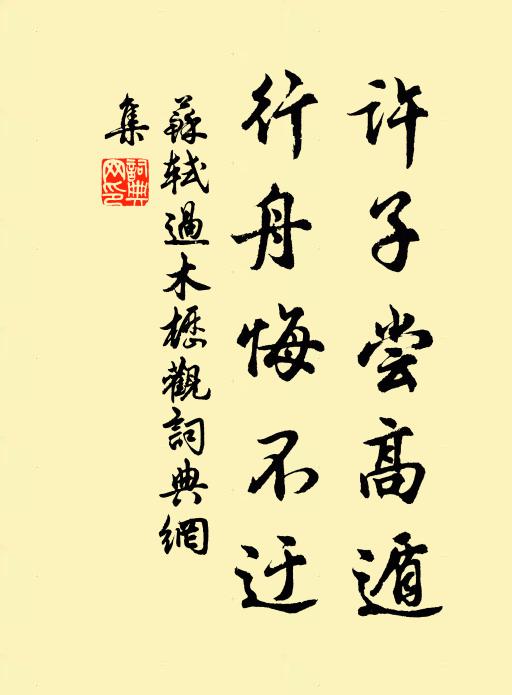 許子尝高遁
行舟悔不迂
蘇軾過木櫪觀詞典網
集
詞典
网印